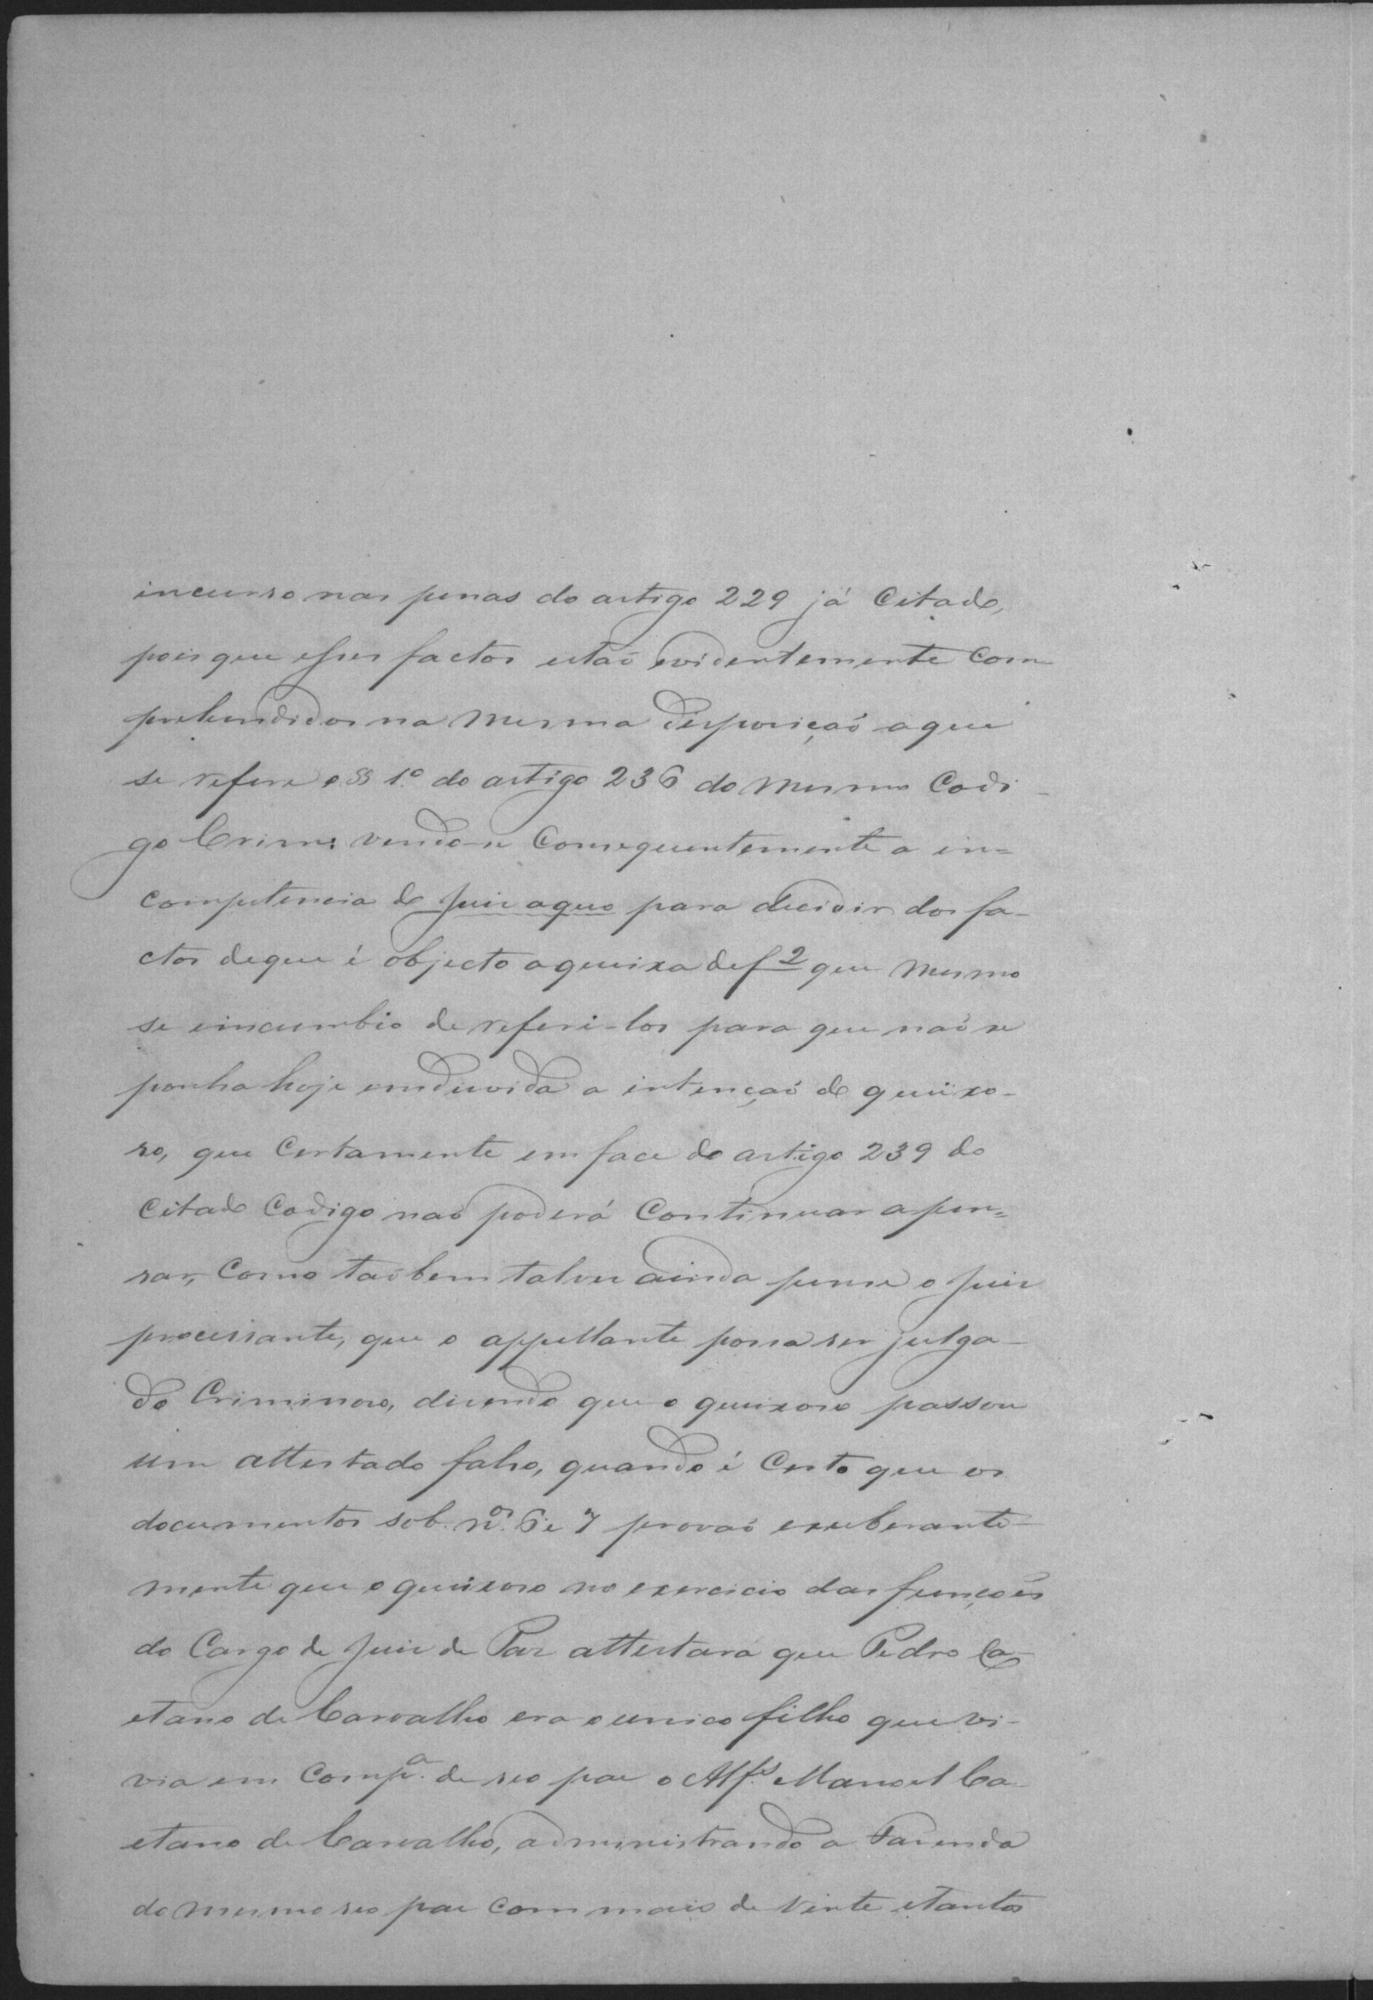 incurso nas penas do artigo 229 já Citado,
pois que esses factos estaõ evidentemente Com
prehendidos na mesma disposiçaõ a que
se refere o § 1º do artigo 236 do mesmo Codi-
go Crim: vendo-se Consequentemente a in=
competencia do Juiz a quo para decidir dos fa-
ctos de que é objecto a queixa de f 2 que mesmo
se eincumbio de referi-los para que naõ se
ponha hoje em duvida a intençaõ do queixo-
so, que Certamente em face do artigo 239 do
Citado Codigo naõ poderá Continuar a pen=
sar, Como taõbem talvez ainda pense o Juiz
processante, que o appellante possa ser julga-
do Criminoso, dizendo que o queixoso passou
um attestado falso, quando é Certo que os
documentos sob nos. 6 e 7 provaõ exuberante-
mente que o queixoso no exercicio das funçoẽs
do Cargo de Juiz de Paz attestara que Pedro Ca-
etano de Carvalho era o unico filho que vi-
via em Compª. de seo pae o Alfs. Manoel Ca-
etano de Carvalho, administrando a Fazenda
do mesmo seo pae com mais de Vinte etantos